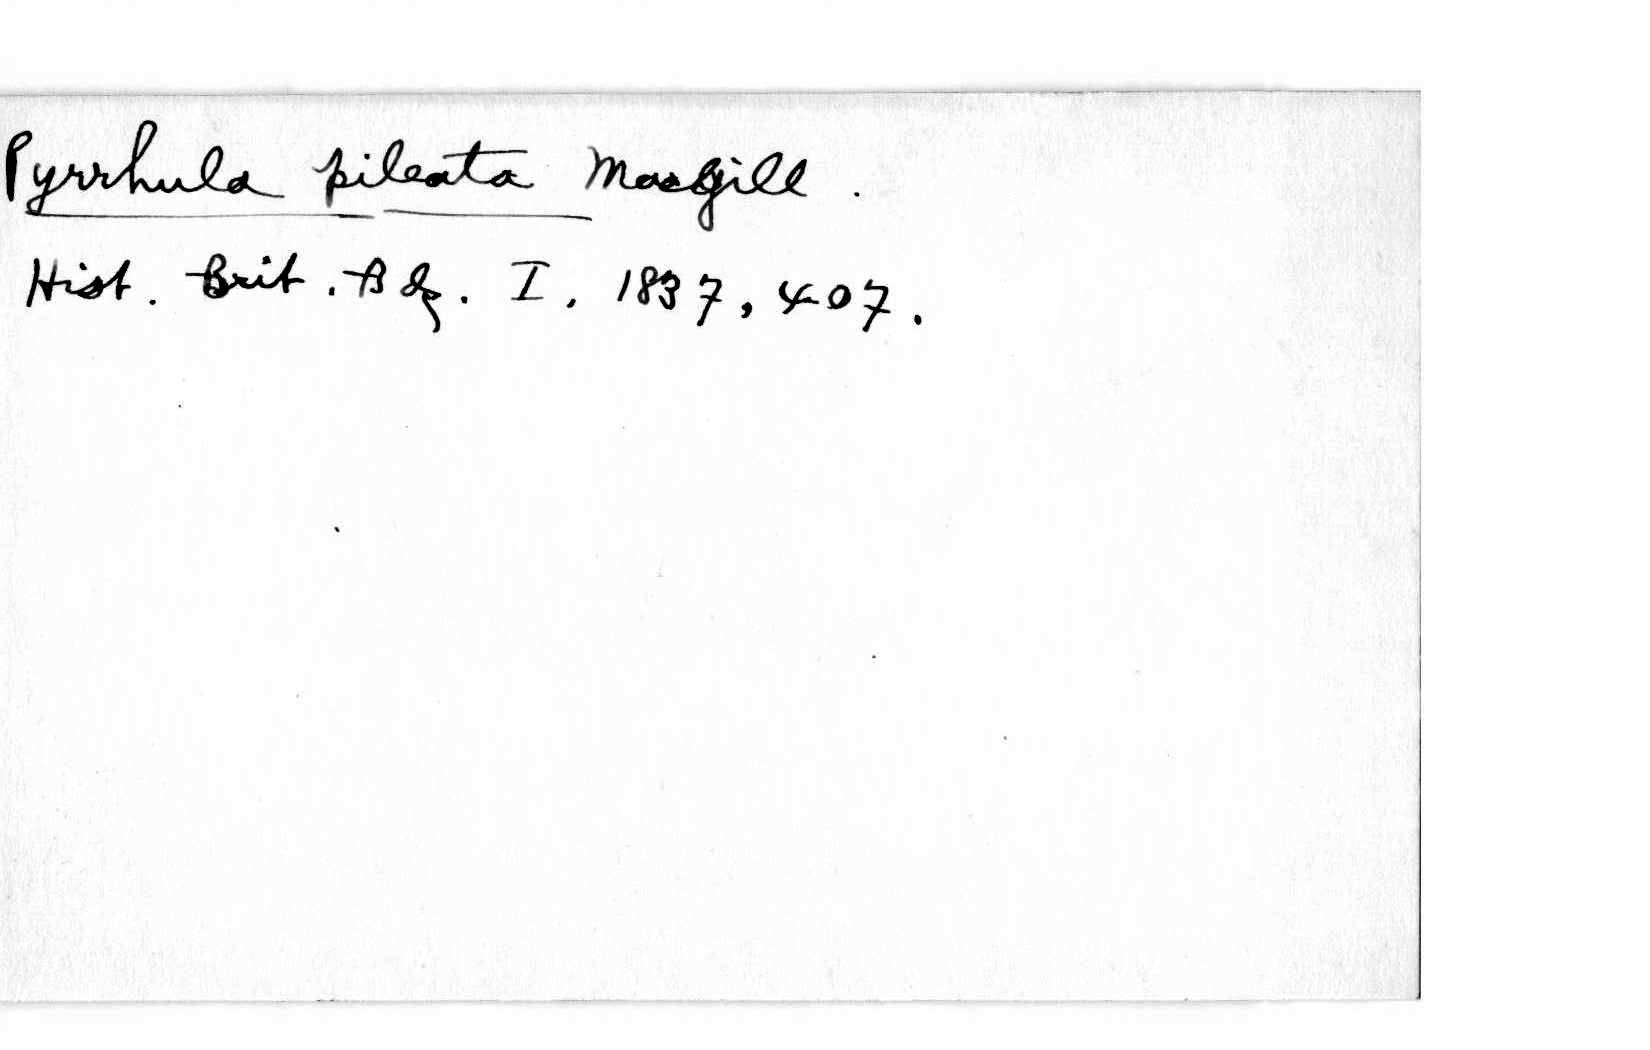 Pyrrhula pileata Macgill.
Hist. Brit. Bds. I, 1837, 407.